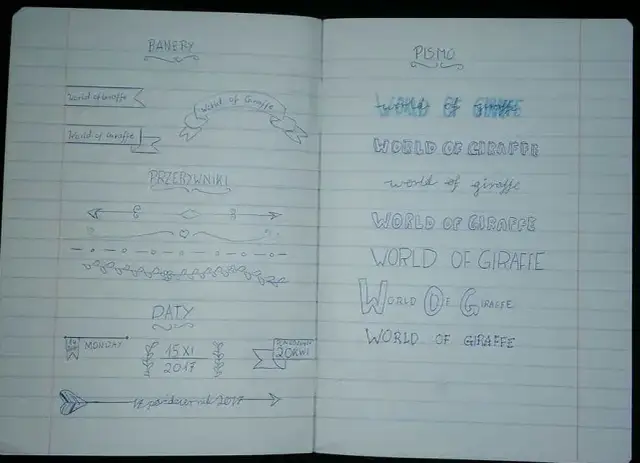 BANERY
World of Giraffe
World of Giraffe
World of Giraffe
PRZERYWNIKI
DATY
MONDAY
15 XI
2017
20 KWI
12 październik 2017
PISMO
World of GIRAFFE
WORLD OF GIRAFFE
world of giraffe
WORLD OF GIRAFFE
WORLD OF GIRAFFE
WORLD OF GIRAFFE
WORLD OF GIRAFFE